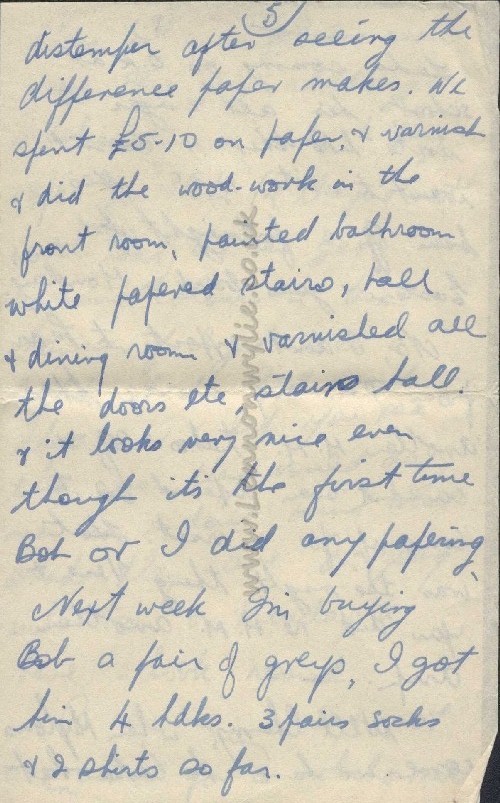 5
distemper after seeing the
difference paper makes. We
spent £5-10 on paper, & varnish
& did the wood-work in the
front room, painted bathroom
white papered stairs, hall
& dining room & varnished all
the doors etc, stairs hall.
& it looks very nice even
though it's the first time
Bob or I did any papering,
Next week I'm buying
Bob a pair of greys, I got
him 4 hdks. 3 pairs socks
& 2 shirts so far.
www.Lennonwylie.co.uk